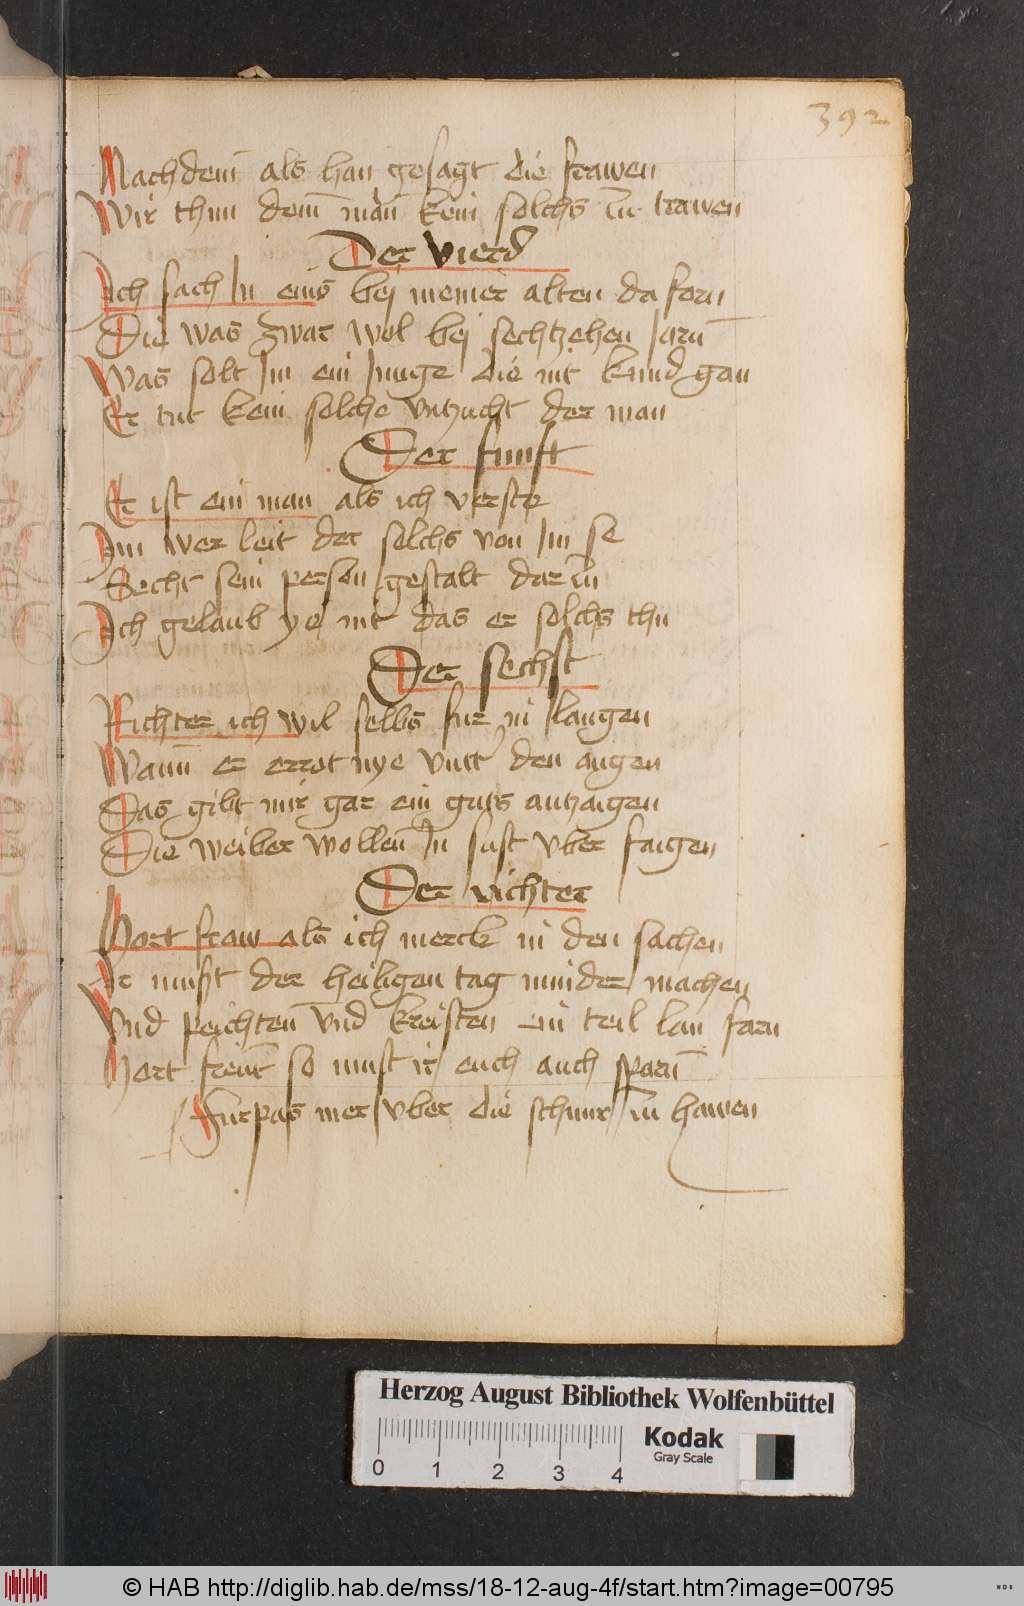 392
Nachdem als han gesagt die frawen
Wir thun dem man kein solchs zu trawen
Der vierd
Ich sach In eins bej meiner alten da forn
Die was zwar wol bej sechtzehen Jarn
Was solt Im ein Junge die nit kund gan
Er tut kein solche vntzucht der man
Der funfft
Er ist ein man als ich verste
Im wer leit der solchs von Im se
Secht sein person gestalt dar zu
Ich gelaub ye nit das er solchs thu
Der sechst
Richter ich wil selbs fur in laugen
Wann er errot nye vnter den augen
Das gibt mir gar ein guts antzaigen
Die weiber wollen In sust vber faigen
Der richter
Hort fraw als ich merck in den sachen
Ir must der heiligen tag minder machen
Vnd peichten vnd kreisten ein teil lan farn
Hort freunt so must ir euch auch sparn
Furpas mer vber die schnur zu hawen
Herzog August Bibliothek Wolfenbüttel
Kodak
Gray Scale
0 1 2 3 4
© HAB http://diglib.hab.de/mss/18-12-aug-4f/start.htm?image=00795